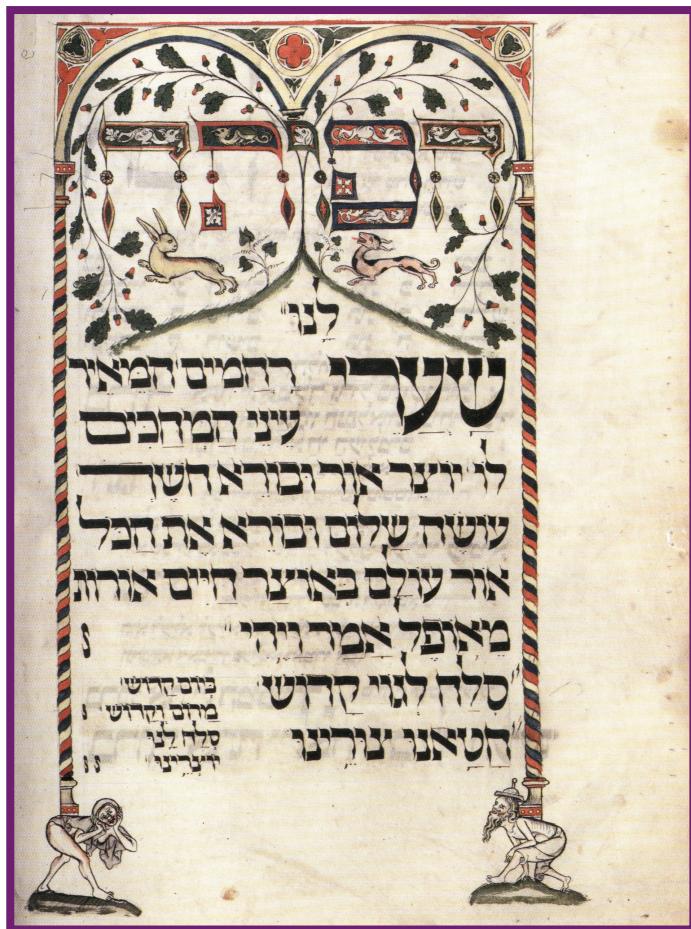 הפותח
לנו
שערי רחמים המאיר
עיני המחכים
לו יוצר אור ובורא חשך
עושה שלום ובורא את הכל
אור עולם באוצר חיים אורות
מאופל אמר ויהי
סלח לגוי קדוש ביום קדוש
מרום וקדוש
חטאנו צורינו סלח לנו
יוצרינו